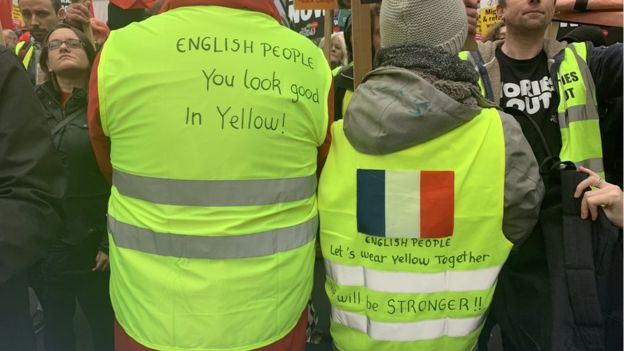 ENGLISH PEOPLE
You look good
In Yellow!
ENGLISH PEOPLE
Let's wear Yellow Together
will be STRONGER!!
ORIES
OUT
OUT